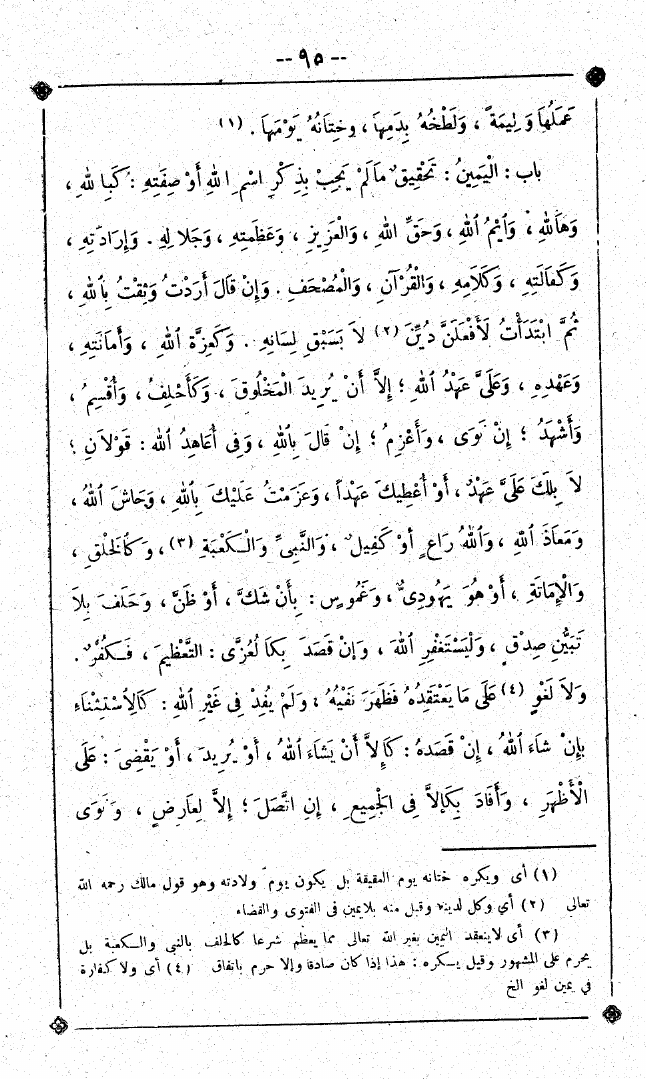 -- ٩٥ --
عَمَلُهَا وَلِيمَةً ، وَلَطْخُهُ بِدَمِهَا ، وخِتَانُهُ يَوْمَهَا . (١)
باب : الْيَمِينُ : تَحْقِيقُ مَالَمْ يَجِبْ بِذِكْرِ اسْمِ اللهِ أَوْ صِفَتِهِ : كَبِاللهِ ،
وَهَاللهِ ، وَأيْمُ اللهِ ، وَحَقِّ اللهِ ، وَالْعَزِيزِ ، وَعَظَمَتِهِ ، وَجَلالِهِ . وَإِرَادَتِهِ ،
وَكَفَالَتِهِ ، وَكَلَامِهِ ، وَالْقُرْآنِ ، وَالْمُصْحَفِ . وَإِنْ قَالَ أَرَدْتُ وَثِقْتُ بِاللهِ ،
ثُمَّ ابْتَدَأْتُ لَأَفْعَلَنَّ دُيِّنَ (٢) لاَ بِسَبْقِ لِسَانِهِ . وَكَعِزَّةِ اللهِ ، وَأَمَانَتِهِ ،
وَعَهْدِهِ ، وَعَلَىَّ عَهْدُ اللهِ ؛ إِلاَّ أَنْ يُرِيدَ الْمَخْلُوقَ ، وَكَأَحْلِفُ ، وَأُقْسِمُ ،
وَأَشْهَدُ ؛ إِنْ نَوَى ، وَأَعْزِمُ ؛ إِنْ قَالَ بِاللهِ ، وَفِى أُعَاهِدُ اللهَ : قَوْلاَنِ ؛
لاَ بِلَكَ عَلَىَّ عَهْدٌ ، أَوْ أُعْطِيكَ عَهْداً ، وَعَزَمْتُ عَلَيْكَ بِاللهِ ، وَحَاشَ اللهُ ،
وَمَعَاذَ اللهِ ، وَاللهُ رَاعٍ أوْ كَفِيلٌ ، وَالنَّبِىِّ وَالْكَعْبَةِ (٣) ، وَكَالْخَلْقِ ،
وَالْإِمَاتَةِ ، أَوْ هُوَ يَهُودِىٌّ ، وَغَمُوسٍ : بِأَنْ شَكَّ ، أَوْ ظَنَّ ، وَحَلَفَ بِلاَ
تَبَيُّنِ صِدْقٍ ، وَلْيَسْتَغْفِرِ اللهَ ، وَإِنْ قَصَدَ بِكَالْعُزَّى : التَّعْظِيمَ ، فَكُفْرٌ .
وَلاَ لَغْوٍ (٤) عَلَى مَا يَعْتَقِدُهُ فَظَهَرَ نَفْيُهُ ، وَلَمْ يُفِدْ فِى غَيْرِ اللهِ : كَالاِسْتِثْنَاءِ
بِإِنْ شَاءَ اللهُ ، إِنْ قَصَدَهُ : كَإِلاَّ أَنْ يَشَاءَ اللهُ ، أَوْ يُرِيدَ ، أَوْ يَقْضِىَ : عَلَى
الْأَظْهَرِ ، وَأَفَادَ بِكَإِلاَّ فِى الْجَمِيعِ ، إِنِ اتَّصَلَ ؛ إِلاَّ لِعَارِضٍ ، وَنَوَى
(١) أى ويكره ختانه يوم العقيقة بل يكون يوم ولادته وهو قول مالك رحمه الله
تعالى (٢) أي وكل لدينه وقبل منه بلايمين فى الفتوى والقضاء
(٣) أى لاينعقد اليمين بغير الله تعالى مما يعظم شرعا كالحلف بالنبى والكعبة بل
يحرم على المشهور وقيل يكره : هذا إذا كان صادقا وإلا حرم باتفاق (٤) أى ولا كفارة
في يمين لغو الخ